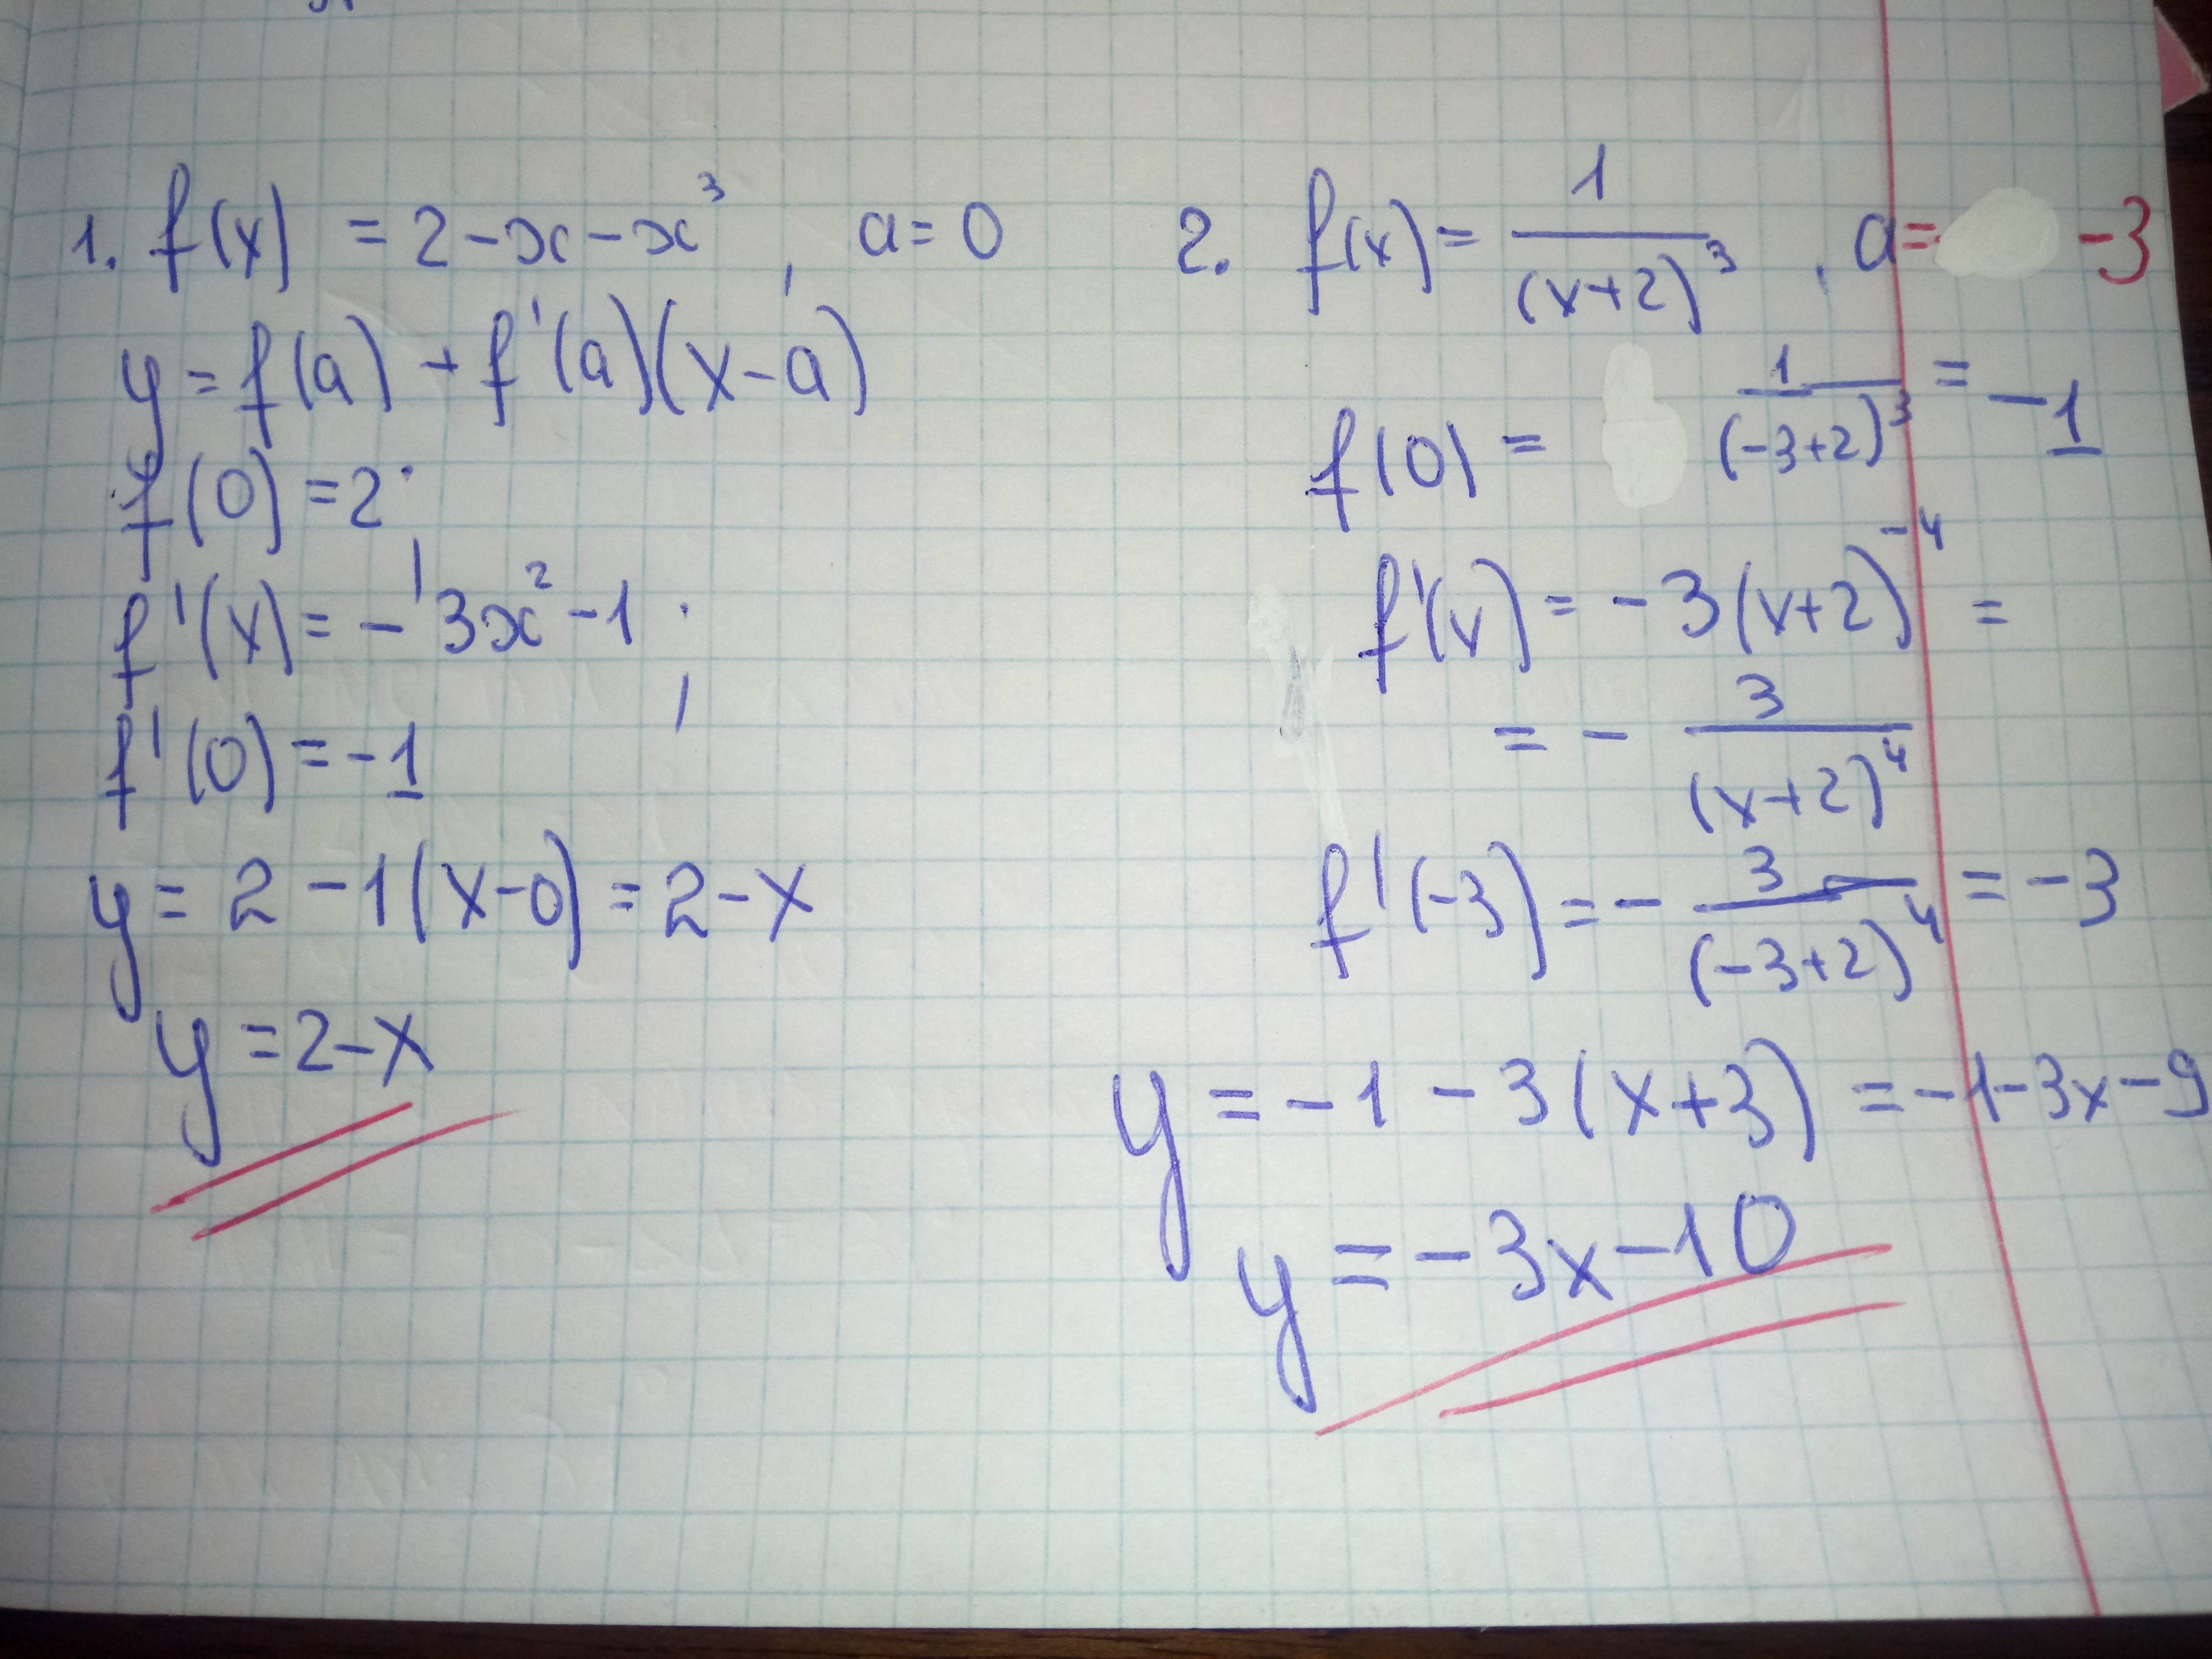 1. f(x) = 2-x-x³, a=0
y=f(a)+f'(a)(x-a)
f(0)=2;
f'(x)=-3x²-1;
f'(0)=-1
y=2-1(x-0)=2-x
y=2-x
2. f(x)=1/(x+2)³, a=-3
f(0)= 1/(-3+2)³=-1
f'(x)=-3(x+2)⁻⁴=
=-3/(x+2)⁴
f'(-3)=-3/(-3+2)⁴=-3
y=-1-3(x+3)=-1-3x-9
y=-3x-10